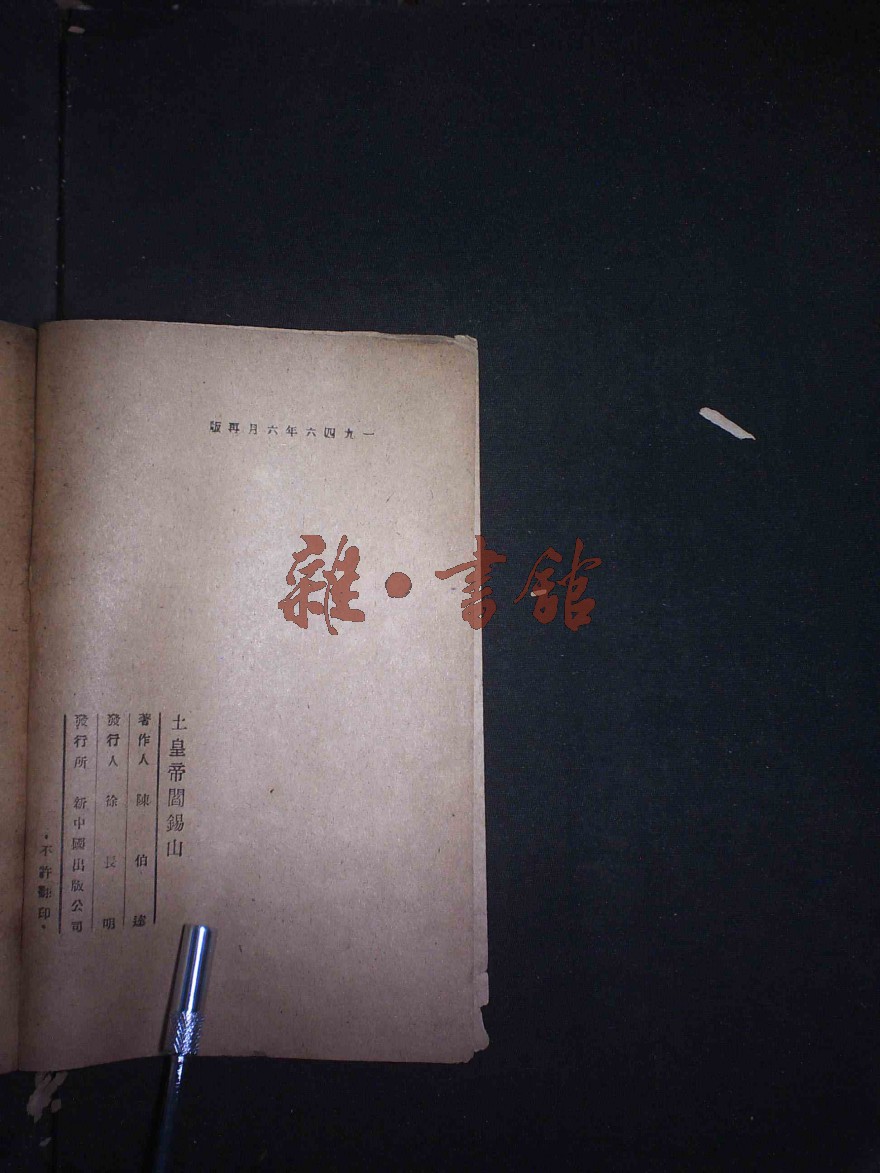 一九四六年六月再版
雜·書館
土皇帝閻錫山
著作人 陳伯達
發行人 徐長明
發行所 新中國出版公司
·不許翻印·